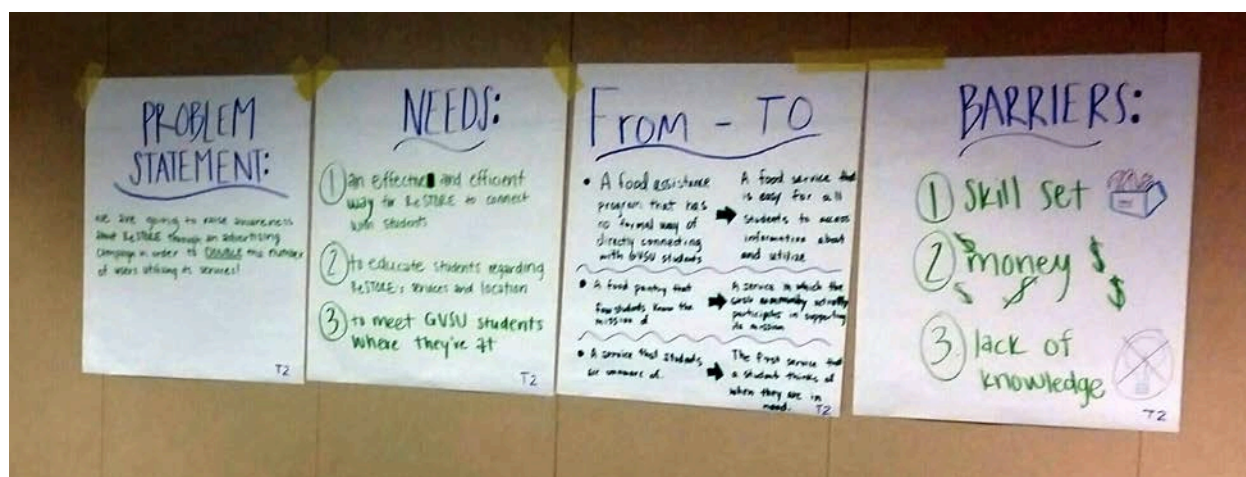 PROBLEM
STATEMENT:
we are going to raise awareness
about ReSTORE through an advertising
campaign in order to the number
of users utilizing its services!
T2
NEEDS:
1 an effective and efficient
way for ReSTORE to connect
with students
2 to educate students regarding
ReSTORE's services and location
3 to meet GVSU students
where they're at
T2
From - To
• A food assistance
program that has
no formal way of
directly connecting
with GVSU students
A food service that
is easy for all
students to access
information about
and utilize
• A food pantry that
few students know the
mission of
A service in which the
community actively
participates in supporting
its mission
• A service that students
are unaware of.
The first service that
a student thinks of
when they are in
need.
T2
BARRIERS:
1 Skill set
2 money $ $
$ $ $
3. lack of
knowledge
T2